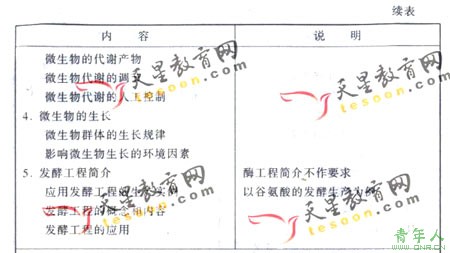 续表
内 容 说 明
微生物的代谢产物
微生物代谢的调节
微生物代谢的人工控制
4. 微生物的生长
微生物群体的生长规律
影响微生物生长的环境因素
5. 发酵工程简介 酶工程简介不作要求
应用发酵工程的生产实例 以谷氨酸的发酵生产为例
发酵工程的概念和内容
发酵工程的应用
天星教育网
tesoon.com
天星教育网
tesoon.com
天星教育网
tesoon.com
天星教育网
tesoon.com
青年人